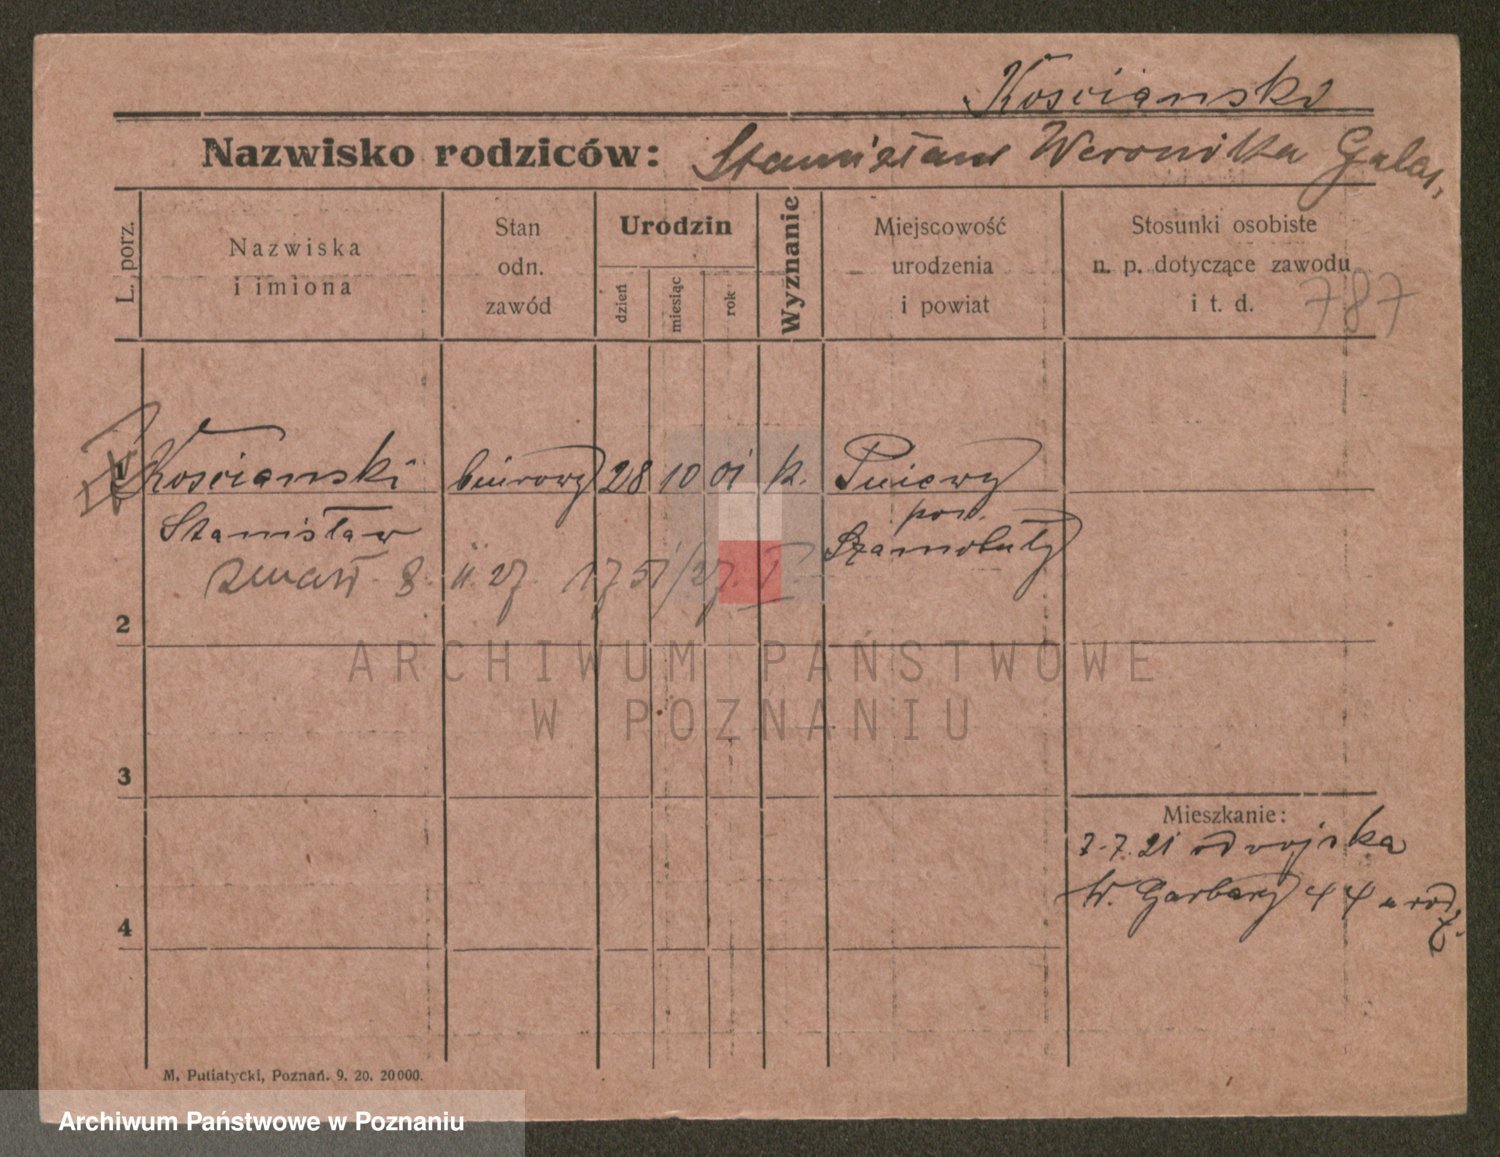 Kościański
Nazwisko rodziców: Stanisław Weronika Galas,
L. porz.
Nazwiska
i imiona
Stan
odn.
zawód
Urodzin
dzień
miesiąc
rok
Wyznanie
Miejscowość
urodzenia
i powiat
Stosunki osobiste
n. p. dotyczące zawodu
i t. d.
787
Kościański biurowy 28 10 01 k. Pniewy
Stanisław pow.
Szamotuły
zmarł 8. II 27 1751/27. V
2
ARCHIWUM PAŃSTWOWE
W POZNANIU
3
Mieszkanie:
7.7.21 od wojska
W. Garbary 44 u rodz.
4
M. Putiatycki, Poznań. 9. 20. 20000.
Archiwum Państwowe w Poznaniu